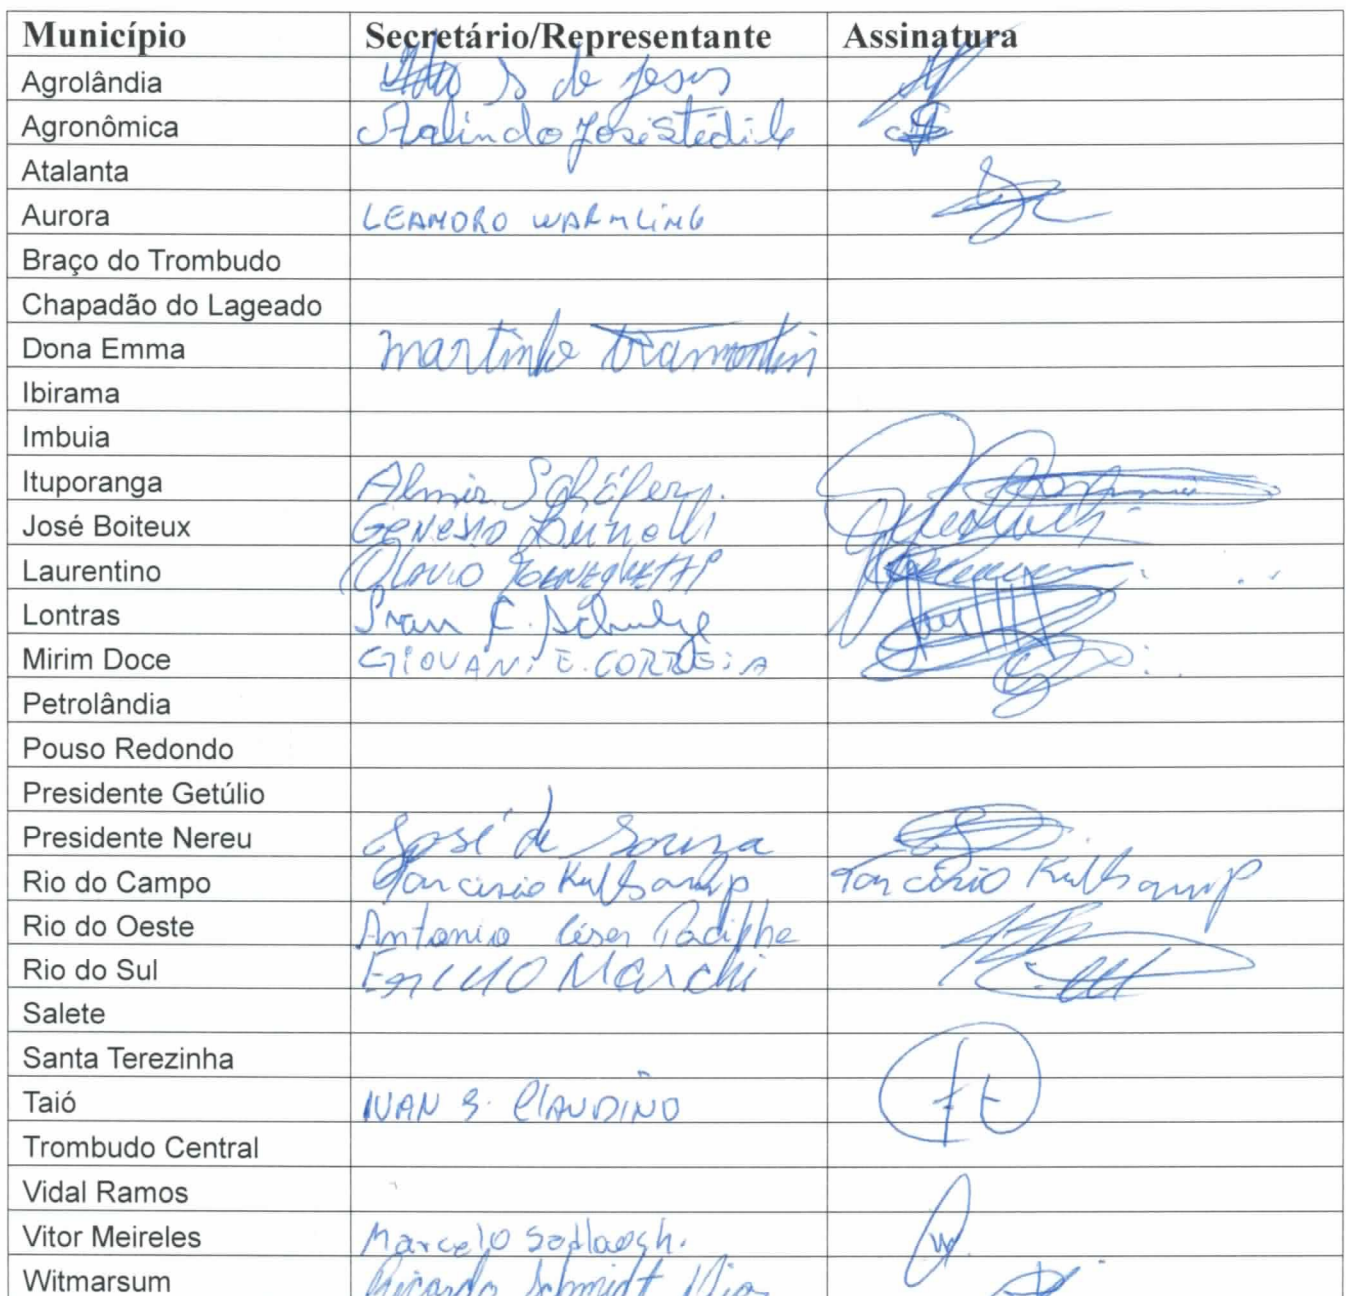 Município Secretário/Representante Assinatura
Agrolândia S de Jesus
Agronômica Stédile
Atalanta
Aurora LEANDRO WARMLING
Braço do Trombudo
Chapadão do Lageado
Dona Emma Martinho Tramontin
Ibirama
Imbuia
Ituporanga Almir Schäfer
José Boiteux Genesio
Laurentino
Lontras Ivan C. Schulze
Mirim Doce GIOVANI E. CORREIA
Petrolândia
Pouso Redondo
Presidente Getúlio
Presidente Nereu José de Souza
Rio do Campo Tarcisio Kulkamp Tarcisio Kulkamp
Rio do Oeste Antonio César
Rio do Sul Marchi
Salete
Santa Terezinha
Taió IVAN S. CLAUDINO
Trombudo Central
Vidal Ramos
Vitor Meireles Marcelo
Witmarsum Ricardo Schmidt